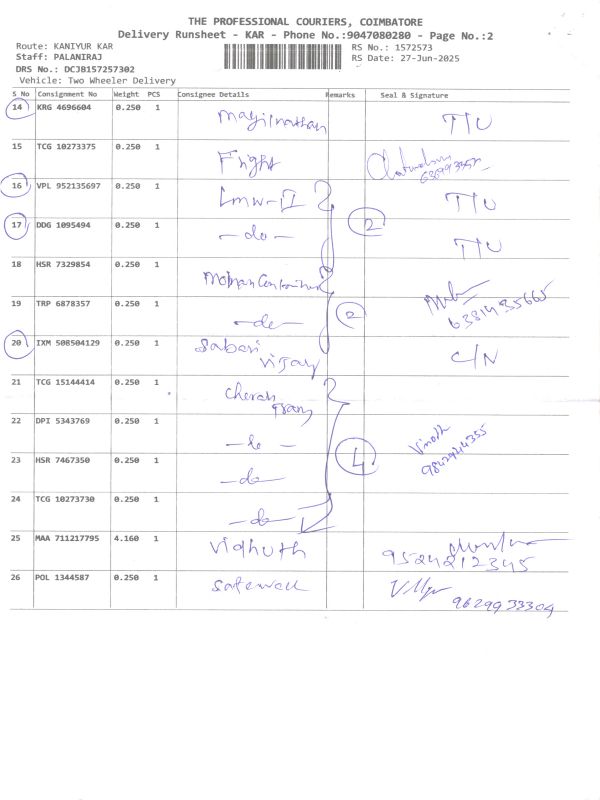 THE PROFESSIONAL COURIERS, COIMBATORE
Delivery Runsheet - KAR - Phone No.:9047080280 - Page No.:2
Route: KANIYUR KAR RS No.: 1572573
Staff: PALANIRAJ RS Date: 27-Jun-2025
DRS No.: DCJB157257302
Vehicle: Two Wheeler Delivery
S No Consignment No Weight PCS Consignee Details Remarks Seal & Signature
14 KRG 4696604 0.250 1 TTU
15 TCG 10273375 0.250 1 Fright
16 VPL 952135697 0.250 1 Lmw-II TTU
17 DDG 1095494 0.250 1 -do- 2 TTU
18 HSR 7329854 0.250 1 6381435665
19 TRP 6878357 0.250 1 -do- 2
20 IXM 508504129 0.250 1 Sabari C/N
21 TCG 15144414 0.250 1 Cheran
22 DPI 5343769 0.250 1 -do- Vinoth
9842944355
23 HSR 7467350 0.250 1 -do- 4
24 TCG 10273730 0.250 1 -do-
25 MAA 711217795 4.160 1 Vidhuth 9524212345
26 POL 1344587 0.250 1 Safewell 9629933304